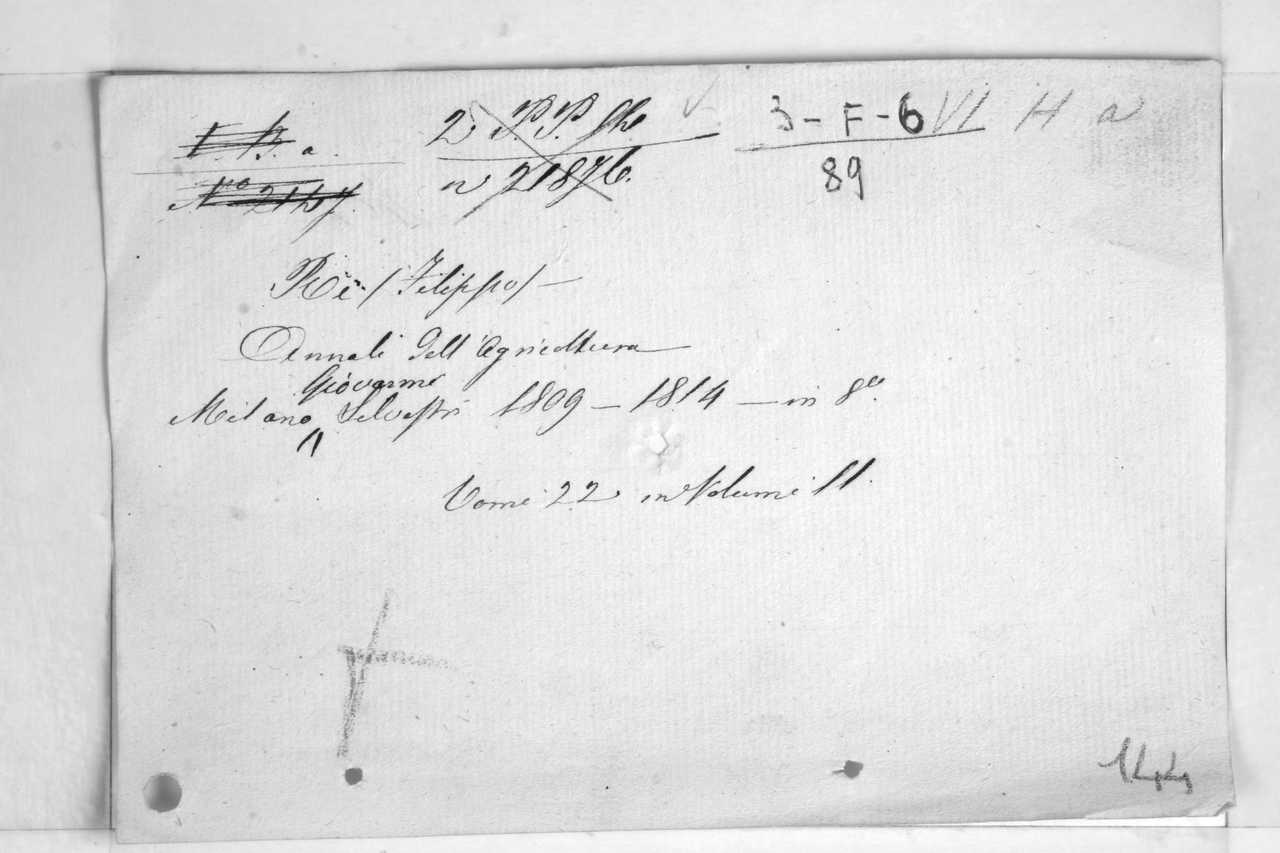 2 P.P. gh. 3-F-6 VI H a
n 21876. 89
Nº 2127.
Rè (Filippo) —
Annali dell'Agricoltura
Giovanni
Milano Silvestri 1809 — 1814 — in 8º.
Tomi 22 in Volumi 11.
144